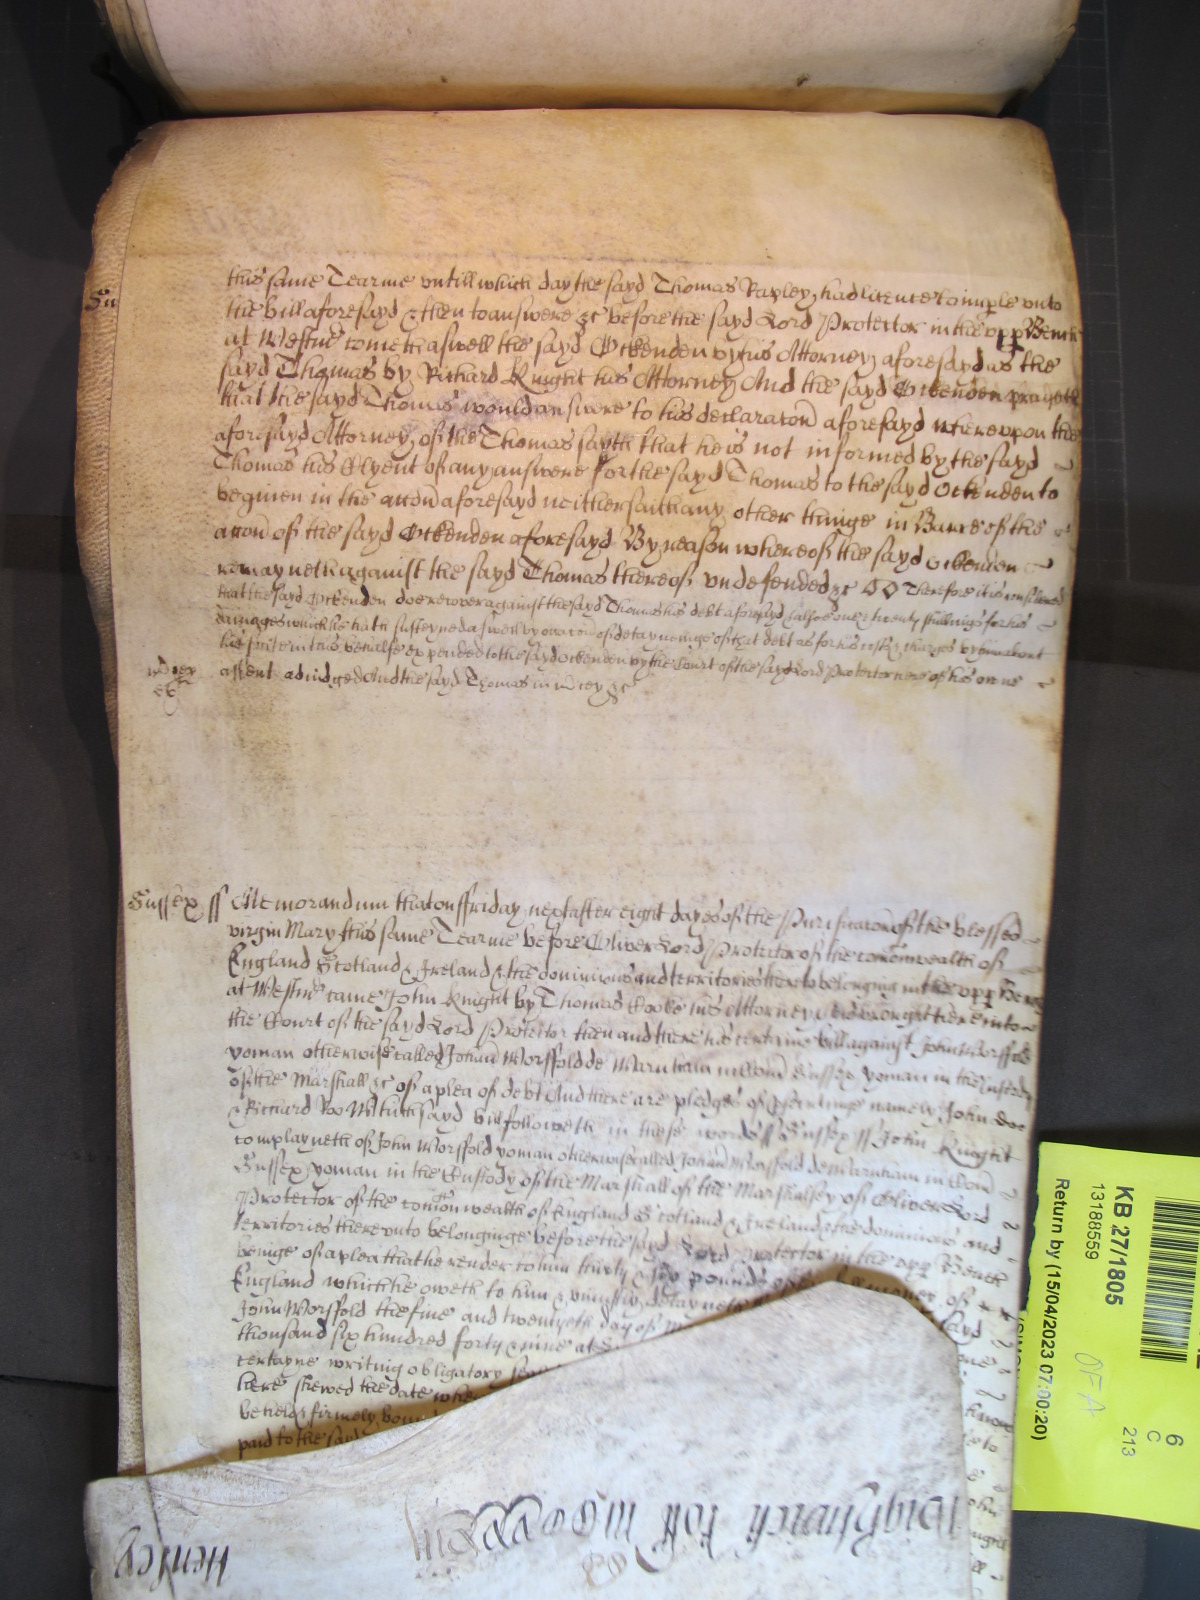 this same Tearme untill which day the sayd Thomas Rapley had licence to imple unto
Su
the bill aforesayd & then to answere &c before the sayd Lord Protector in the upp Bench
at Westm cometh aswell the sayd Ockenden by his Attorney aforesayd as the
sayd Thomas by Richard Knight his Attorney And the sayd Ockenden prayeth
that the sayd Thomas would answere to his declaraton aforesayd whereupon the
aforesayd Attorney of the Thomas sayth that he is not informed by the sayd
Thomas his Clyent of any answere for the sayd Thomas to the sayd Ockenden to
be given in the accon aforesayd neither saith any other thinge in Barre of the
accon of the sayd Ockenden aforesayd By reason whereof the sayd Ockenden
remayneth against the sayd Thomas thereof undefended &c Therefore it is considered
that the sayd Ockenden doe recover against the sayd Thomas his debt aforesayd & alsoe one & twenty shillings for his
damages which he hath susteyned aswell by occacon of detayneinge of that debt as for his costs & charges by him about
his suite in this behalfe expended to the sayd Ockenden by the Court of the sayd Lord Protector here of his owne
assent adiudged And the sayd Thomas in mcy &c
Sussex ss Memorandum that on ffriday next after eight dayes of the Purificacon of the blessed
virgin Mary this same Tearme before Oliver Lord Protector of the comonwealth of
England Scotland & Ireland & the dominions and territories thereto belonging in the upp Bench
at Westm came John Knight by Thomas his Attorney And brought here into
the Court of the sayd Lord Protector then and there his certaine bill against John Worsfold
yoman otherwise called Johan Worsfold de Warnham in Com Sussex yoman in the Custody
of the Marshall &c of a plea of debt And there are pledges of psecutinge namely John Doe
& Richard Roo Which sayd bill followeth in these words ss Sussex ss John Knight
complayneth of John Worsfold yoman otherwise called Johan Worsfold de Warnham in Com
Sussex yoman in the Custody of the Marshall of the Marshalsey of Oliver Lord
Protector of the comonwealth of England Scotland & Ireland & the dominions and
territories thereunto belonginge before the sayd Lord Protector in the upp Bench
beinge of a plea that he render to him thirty & six pounds of money of
England which he oweth to him & uniustly detayneth
John Worsfold the fine and twentyeth day of sayd
thousand six hundred forty & nine at
certayne writing obligatory
here shewed the date
be held & firmely
paid to the sayd
Henley
KB 27/1805
13188559
Return by (15/04/2023 07:00:20)
6
C
213